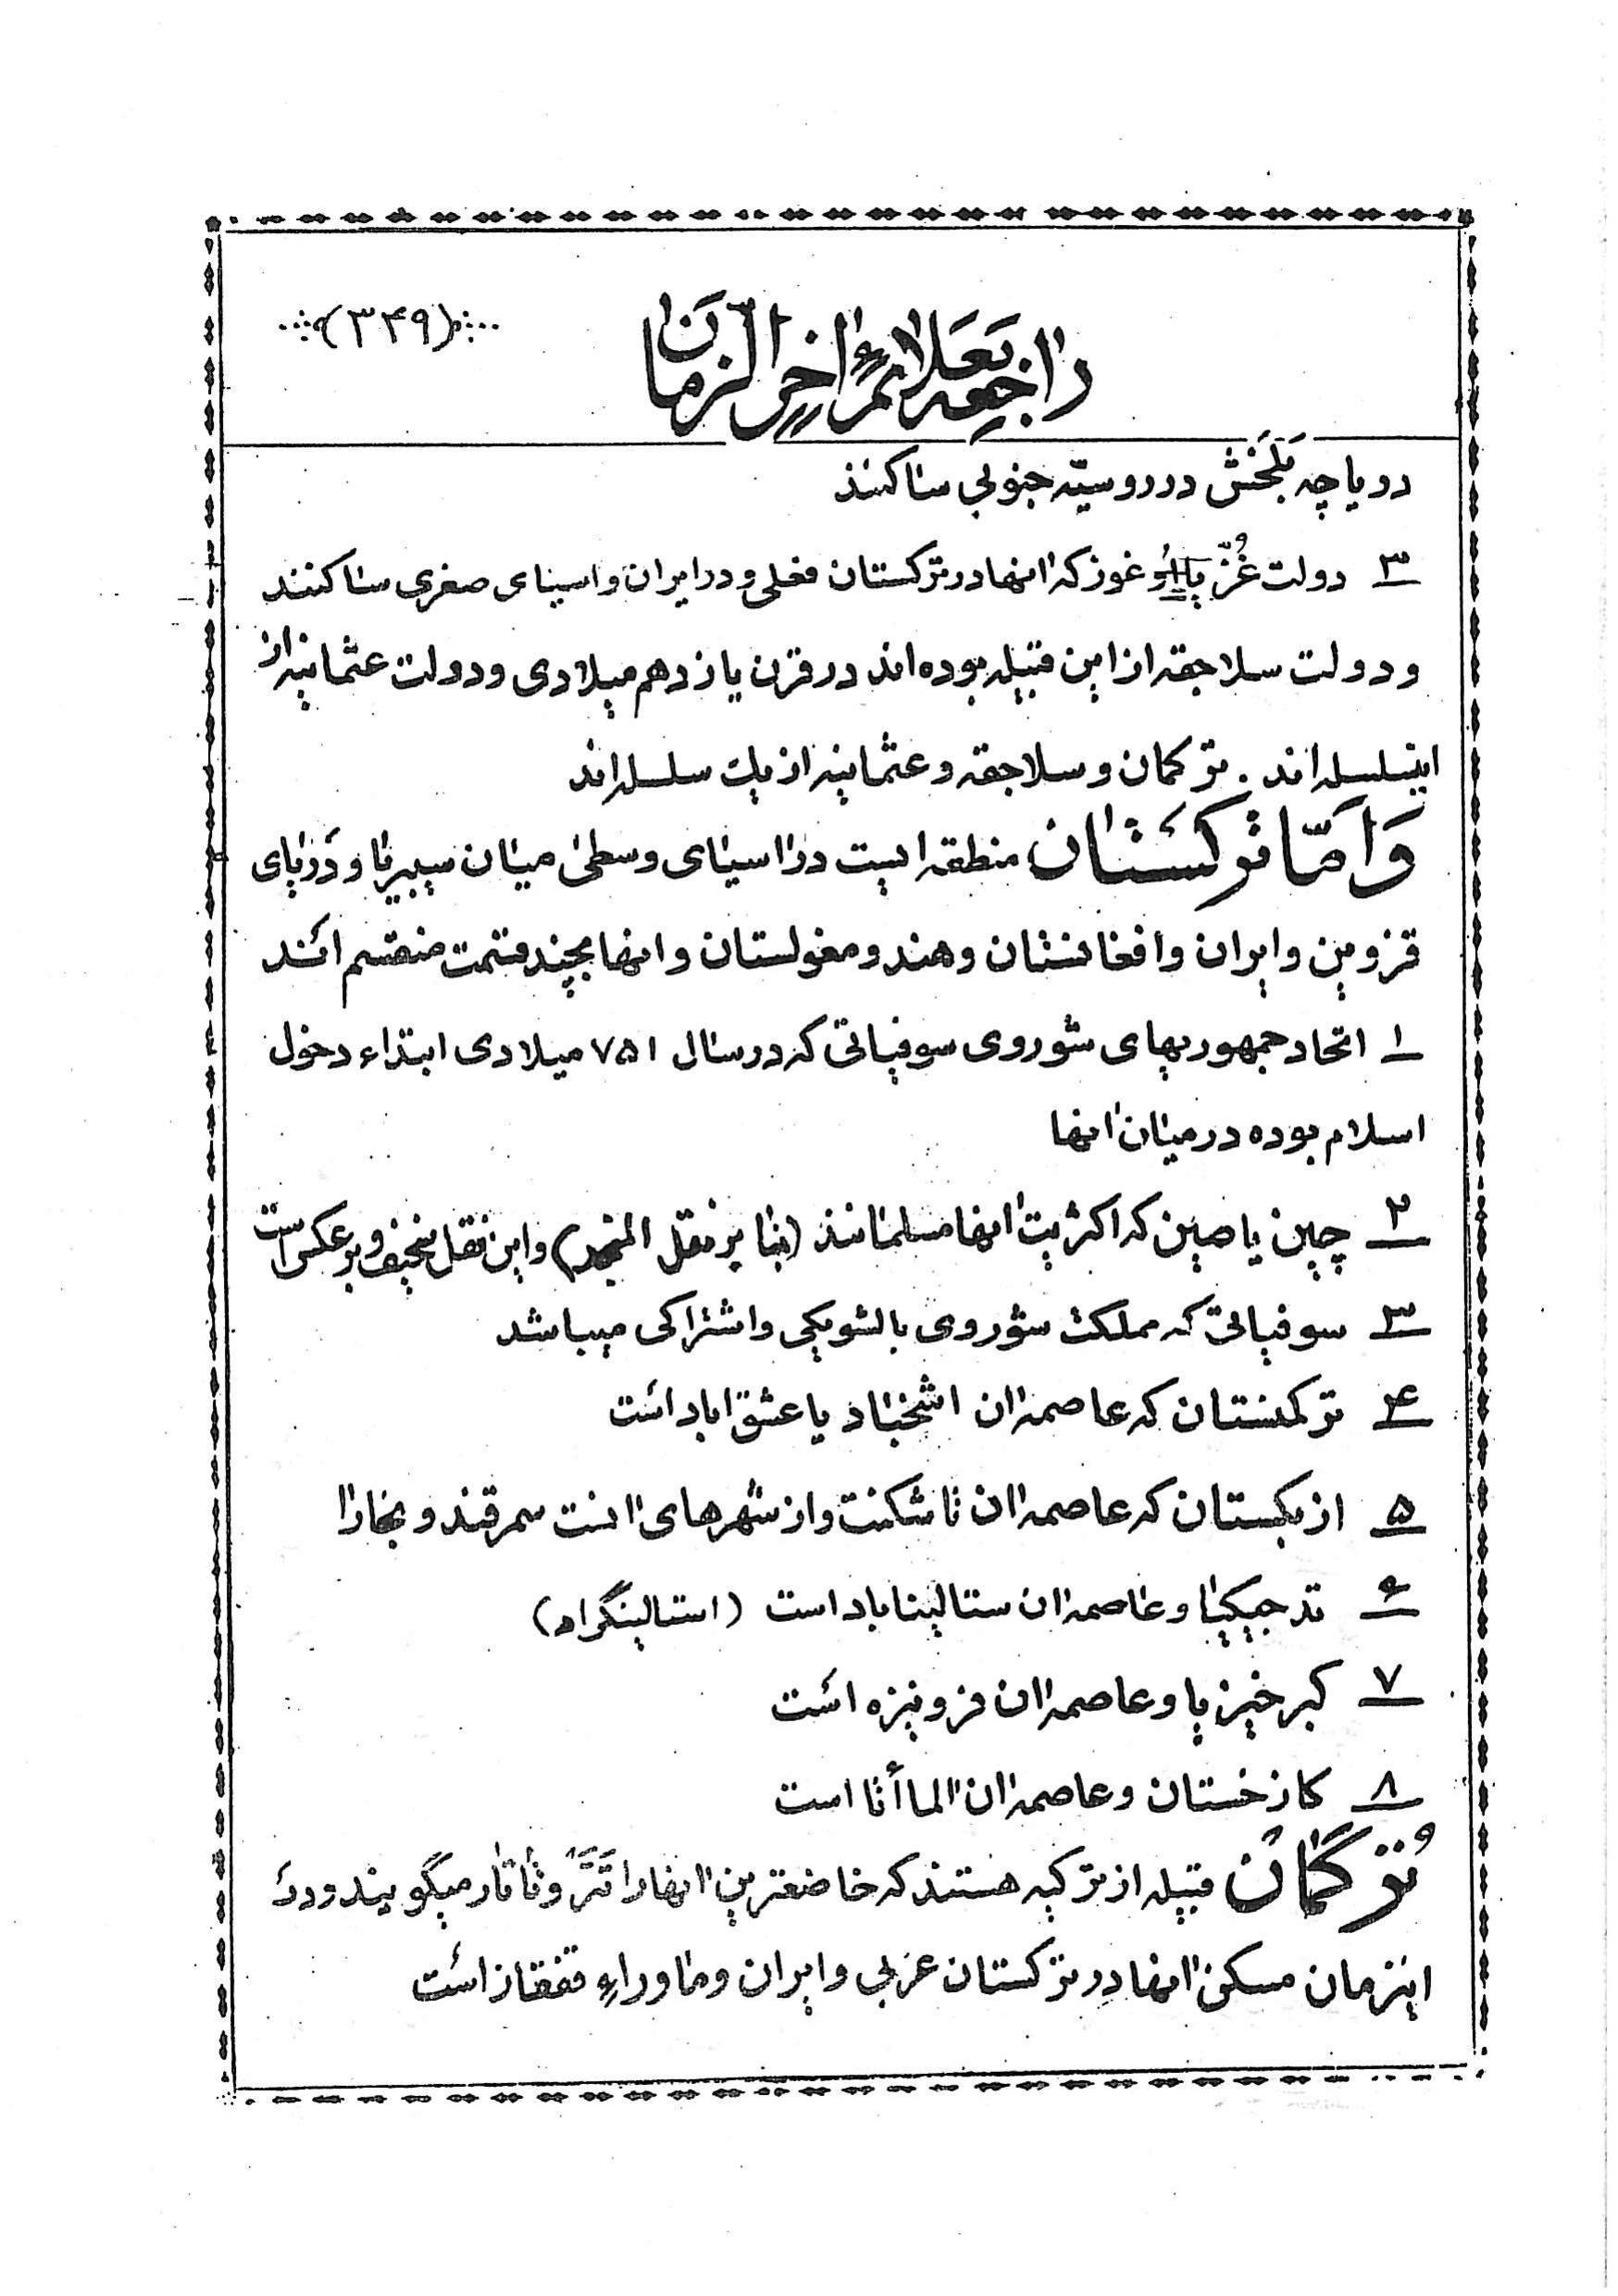 (۳۴۹)
راجعه بعلائم اخر الزمان
دریاچه بَلخَش در روسیّه جنوبی ساکنند
۳ دولت غُزّ یا اُوغوز که انها در ترکستان فعلی و در ایران و اسیای صغری ساکنند
و دولت سلاجقه از این قبیله بوده اند در قرن یازدهم میلادی و دولت عثمانیه از
اینسلسله اند . ترکمان و سلاجقه و عثمانیه از یک سلسله اند
وَامّا ترکستان منطقه ایست در اسیای وسطی میان سیبریا و دریای
قزوین و ایران و افغانستان و هند و مغولستان و انها بچند قسمت منقسم اند
۱ اتحاد جمهوریهای شوروی سوفیاتی که در سال ۷۵۱ میلادی ابتداء دخول
اسلام بوده در میان انها
۲ چین یا صین که اکثریت انها مسلمانند (بنا بر نقل المنجد) و این نقل سخیف و بر عکس است
۳ سوفیاتی که مملکت شوروی بالشویکی و اشتراکی میباشد
۴ ترکمنستان که عاصمه ان اشخباد یا عشق اباد است
۵ ازبکستان که عاصمه ان تاشکنت و از شهرهای انست سمرقند و بخارا
۶ تدجیکیا و عاصمه ان ستالیناباد است (استالینگراد)
۷ کیرخیزیا و عاصمه ان فرونزه است
۸ کازخستان و عاصمه ان الما أتا است
تُرکمان قبیله از ترکیه هستند که خاضعترین انها را تَتَر و تاتار میگویند و در
اینزمان مسکن انها در ترکستان غربی و ایران و ماوراء قفقاز است